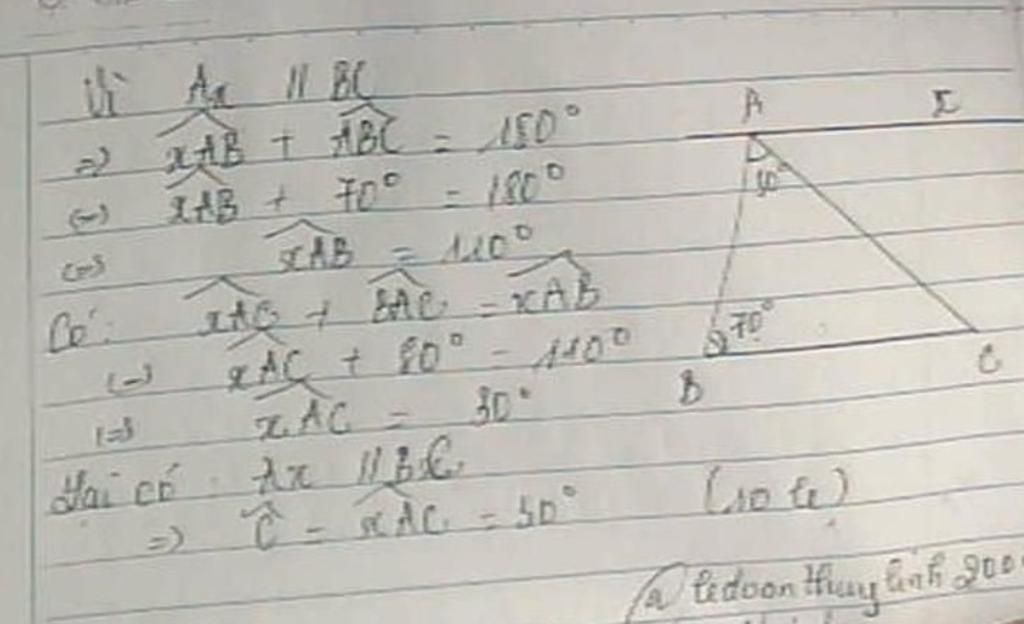 Vì Ax // BC
=> xAB + ABC = 180°
(=) xAB + 70° = 180°
(=) xAB = 110°
Có: xAC + BAC = xAB
(=) xAC + 80° = 110°
(=) xAC = 30°
Lại có: Ax // BC
=> C = xAC = 30° (so le)
A x
80°
70°
B C
@ ledoanthuylinh 200